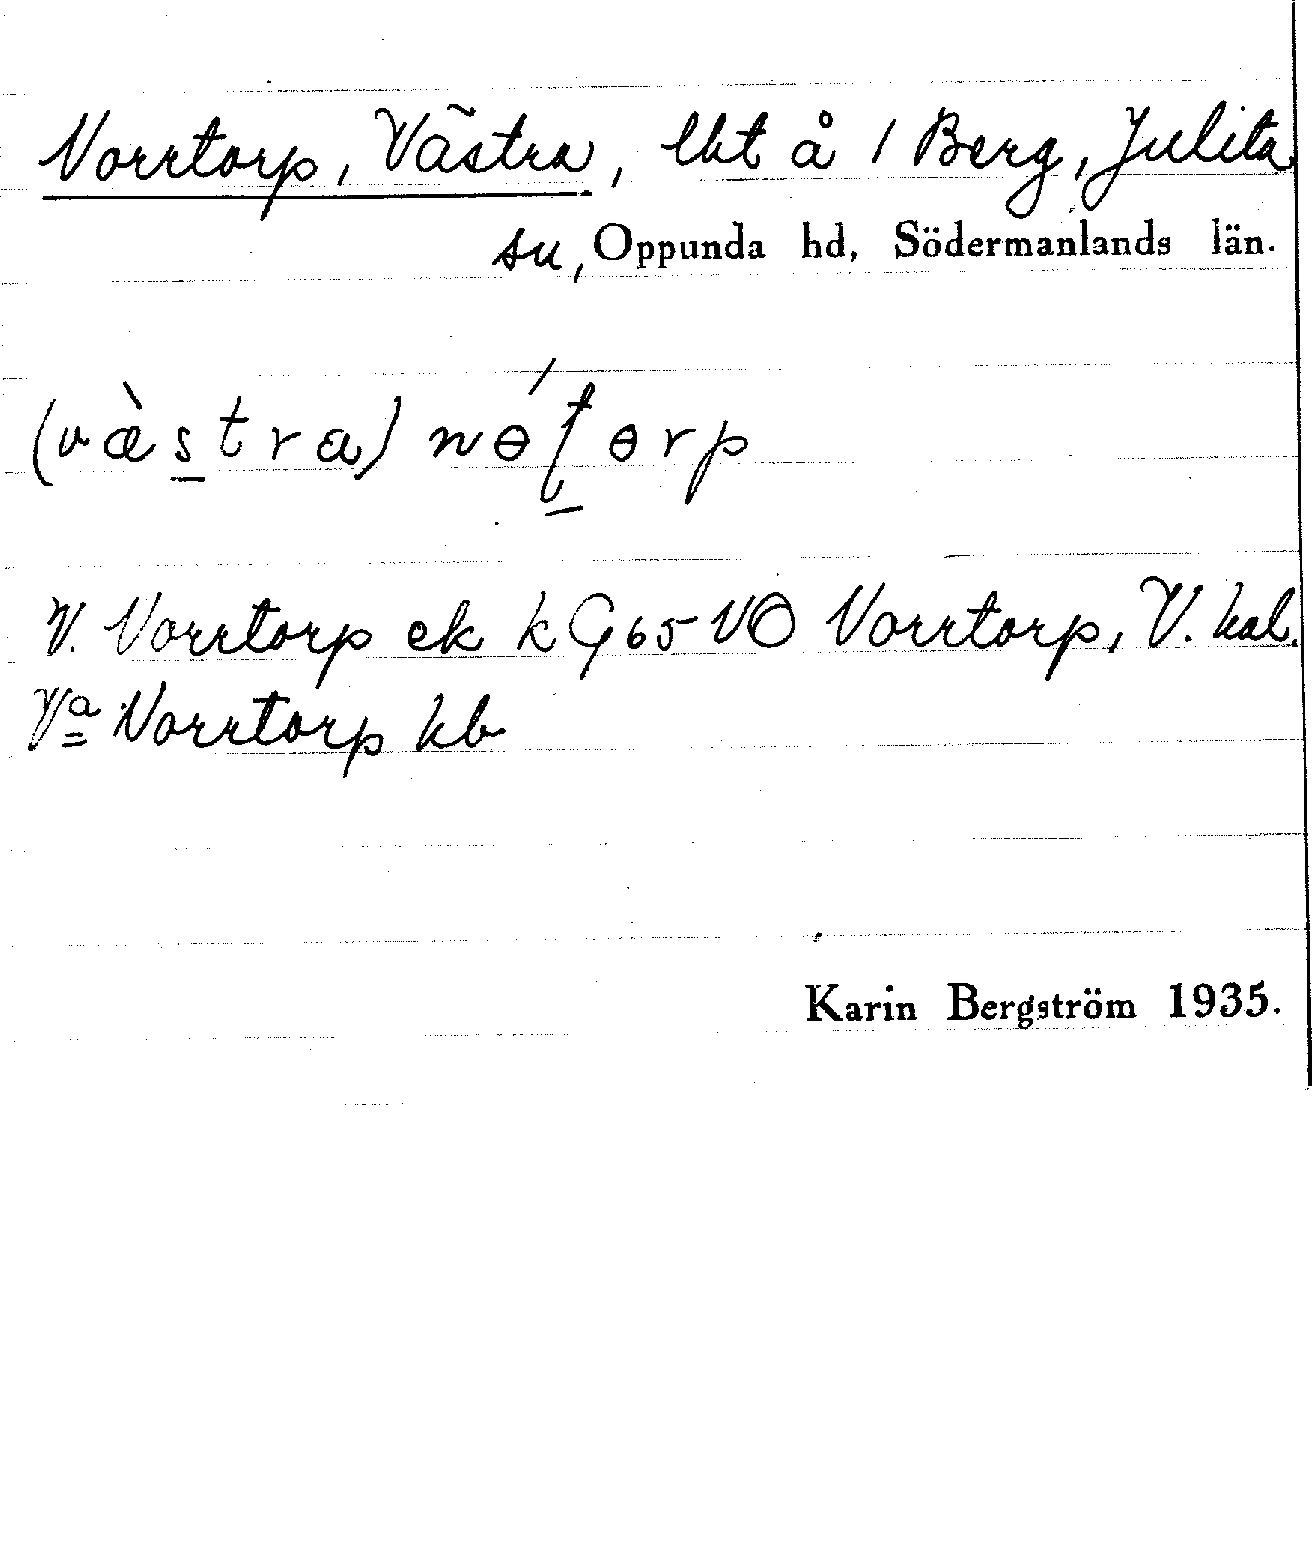 Norrtorp, Västra, lht å 1 Berg, Julita
sn, Oppunda hd, Södermanlands län.
(væ̀stra) nɵ́ʈɵrp
V. Norrtorp ek k G65 NO Norrtorp, V. hal.
Va Norrtorp kb
Karin Bergström 1935.